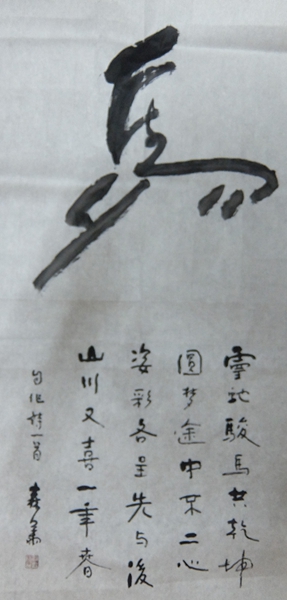 馬
地駿馬共乾坤
圓梦途中不二心
姿彩各呈先与後
山川又喜一年春
自作詩一首